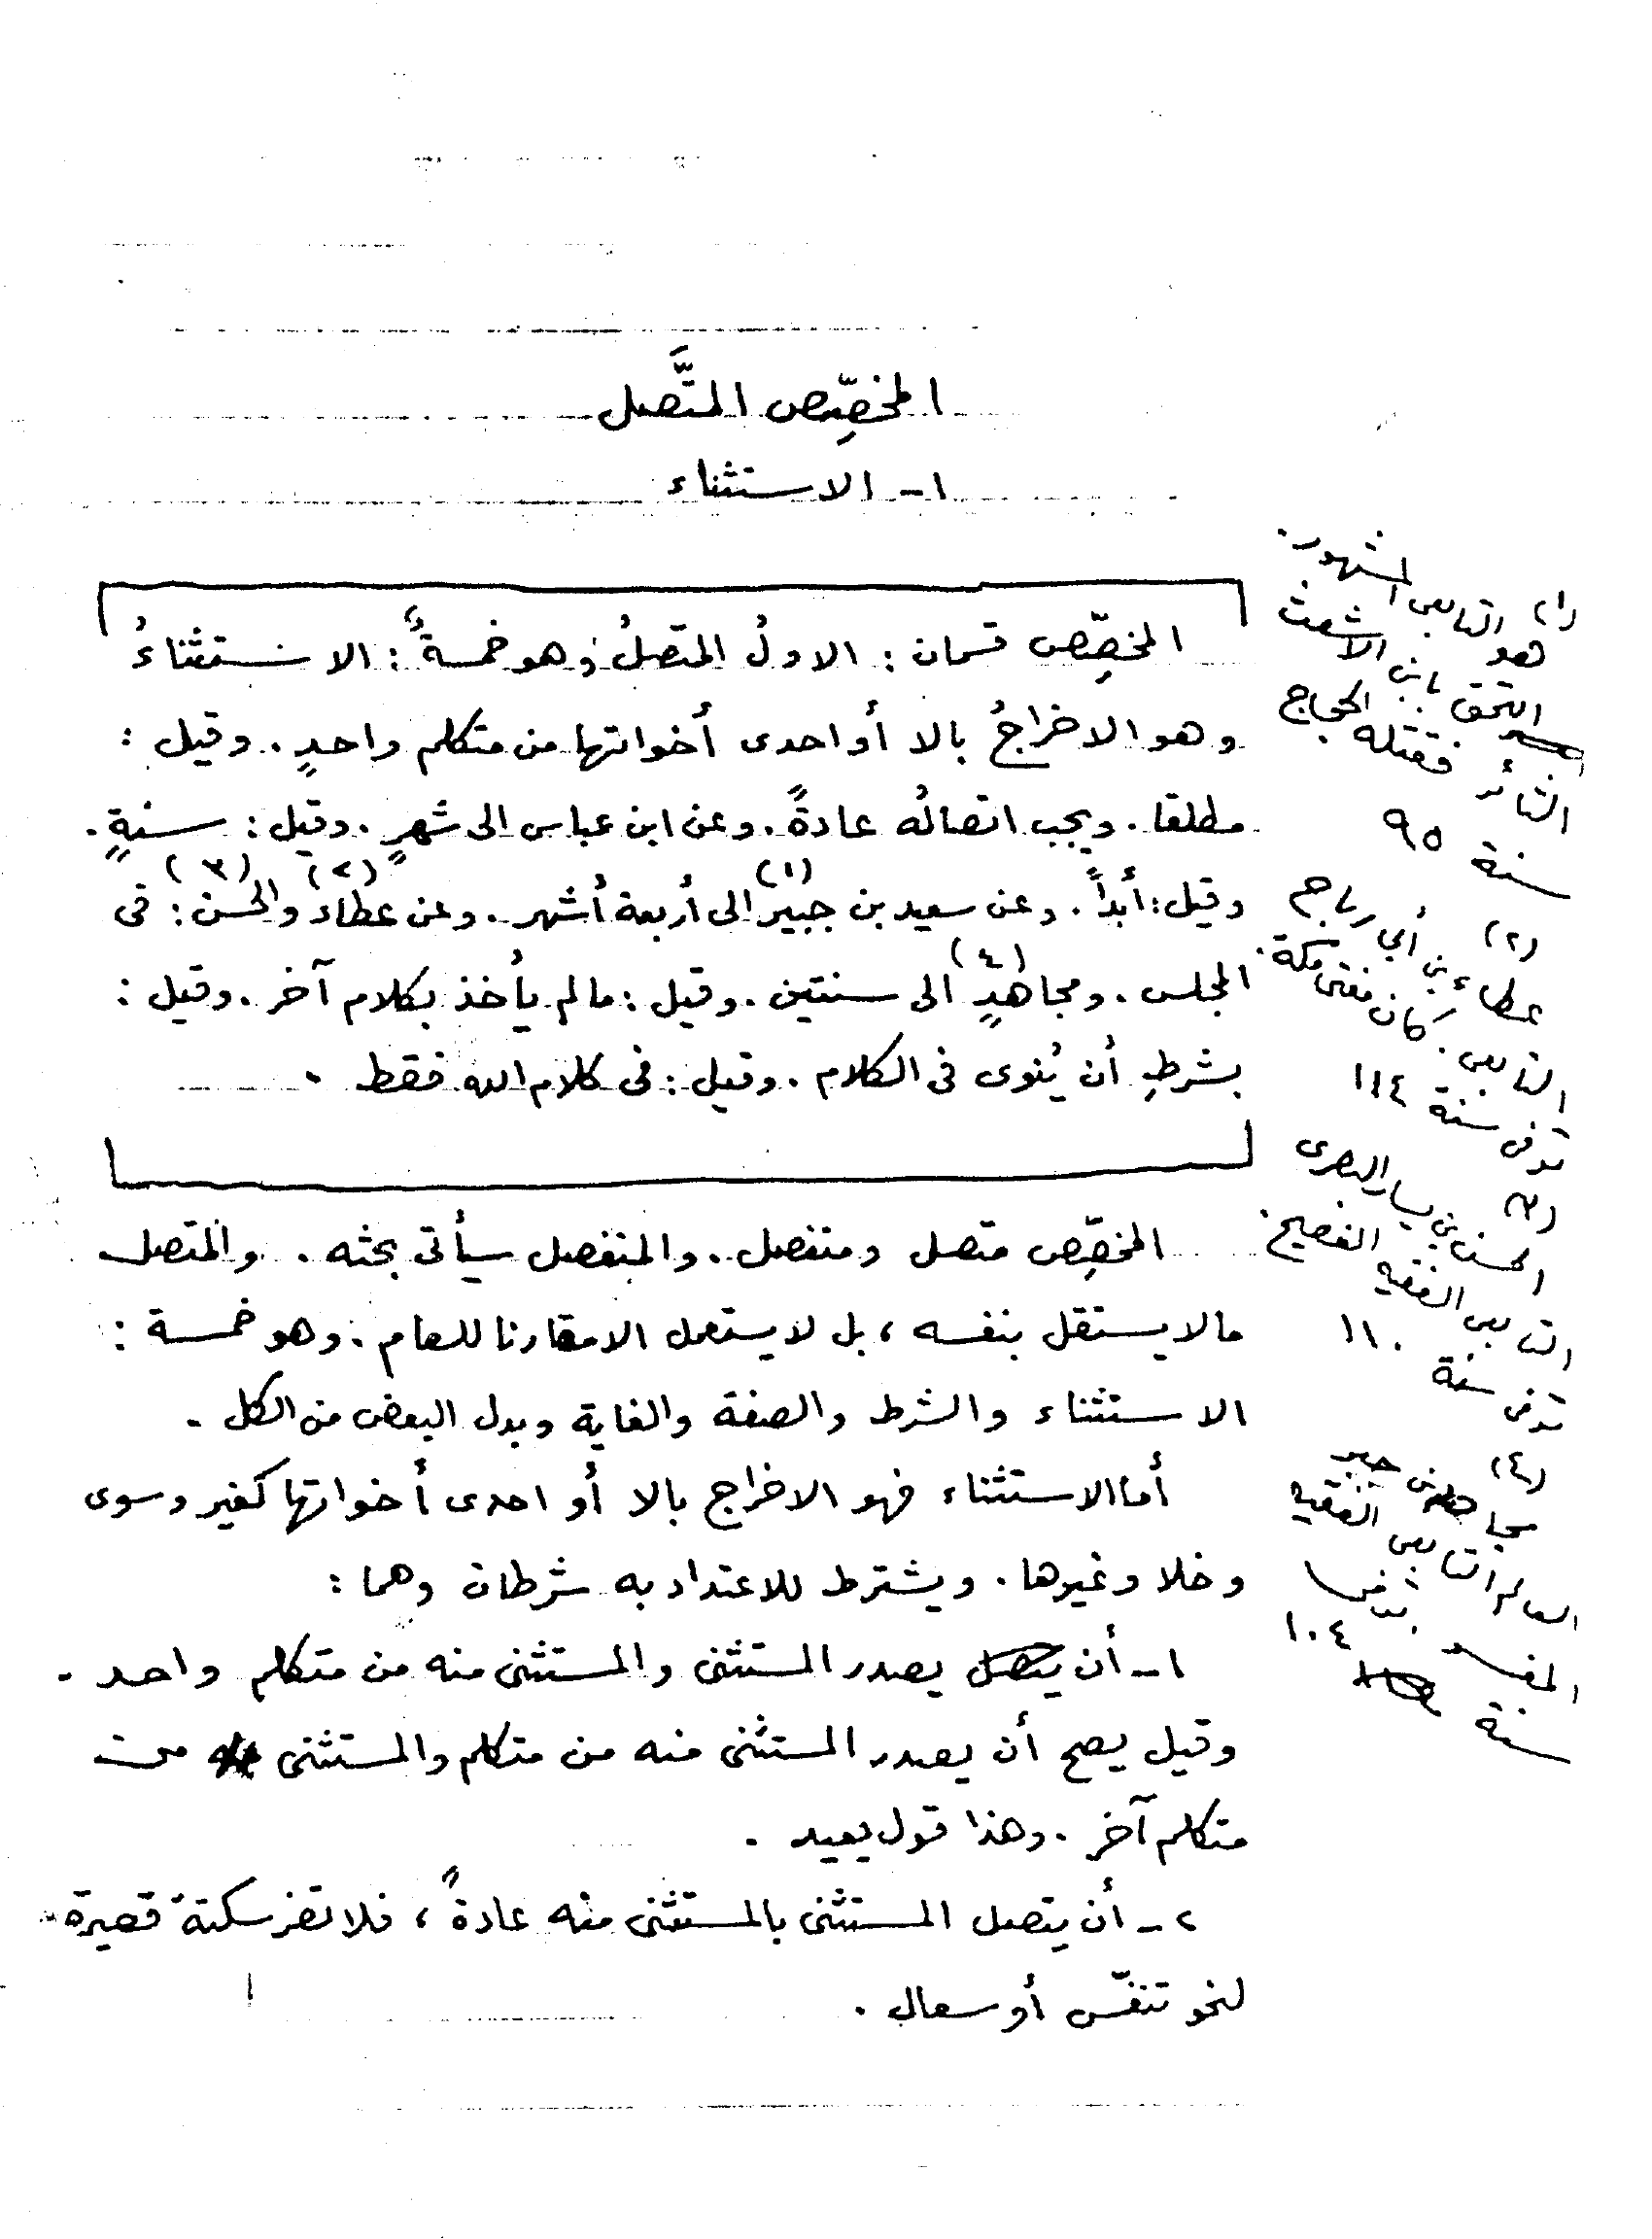 المخصِّص المتَّصل
١- الاستثناء
المخصِّص قسمان : الاولُ المتصلُ وهو خمسةٌ : الاستثناءُ
وهو الاخراجُ بالا أو احدى أخواتها من متكلم واحدٍ . وقيل :
مطلقا . ويجب اتصالُه عادةً . وعن ابن عباس الى شهرٍ . وقيل : سنةٍ .
وقيل : أبداً . وعن سعيد بن جبير (١) الى أربعة أشهر . وعن عطاء (٢) والحسن (٣) : فى
المجلس . ومجاهدٍ (٤) الى سنتين . وقيل : مالم يأخذ بكلام آخر . وقيل :
بشرطِ أن يُنوى فى الكلام . وقيل : فى كلام الله فقط .
المخصِّص متصل ومنفصل . والمنفصل سيأتى بحثه . والمتصل
مالا يستقل بنفسه ، بل لا يستعمل الا مقارنا للعام . وهو خمسة :
الاستثناء والشرط والصفة والغاية وبدل البعض من الكل .
أما الاستثناء فهو الاخراج بالا أو احدى أخواتها كغير وسوى
وخلا وغيرها . ويشترط للاعتداد به شرطان وهما :
١- أن يصدر المستثنى والمستثنى منه من متكلم واحد .
وقيل يصح أن يصدر المستثنى منه من متكلم والمستثنى من
متكلم آخر . وهذا قول بعيد .
٢- أن يتصل المستثنى بالمستثنى منه عادةً ، فلا تضر سكتة قصيرة
لنحو تنفّس أو سعال .
(١)
هو التابعى المشهور .
التحق بابن الاشعث
الثائر فقتله الحجاج
سنة ٩٥
(٢)
عطاء بن أبى رباح
التابعى . كان مفتى مكة .
توفى سنة ١١٤
(٣)
الحسن بن يسار البصرى
التابعى الفقيه الفصيح .
توفى سنة ١١٠
(٤)
مجاهد بن جبر
العالم التابعى الفقيه
المفسر . توفى
سنة ١٠٤